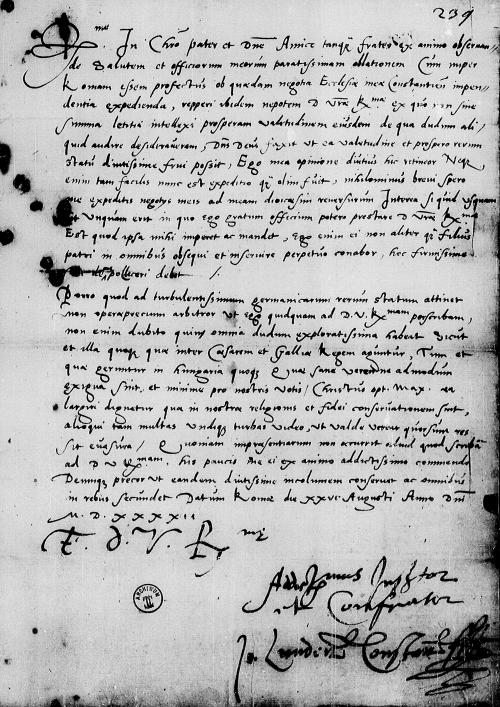 239
R.me In Chro pater et Dne Amice tanq frater ex animo observan-
de Salutem et officiorum meorum paratissimam oblationem Cum nuper
Romam essem profectus ob quædam negotia Ecclesiæ meæ Constantien impen-
dentia expedienda, repperi ibidem nepotem D Vræ R.mæ ex quo non sine
summa letitia intellexi prosperam valetudinem eiusdem de qua dudum ali-
quid audire desideraveram, Dns Deus faxit ut ea valetudine et prospero rerum
statu diutissime frui possit, Ego mea opinione diutius hic retineor Neq
enim tam facilis nunc est expeditio q olim fuit, nihilominus brevi spero
me expeditis negotys meis ad meam diocæsim reversurum Interea si quid usquam
aut unquam erit in quo ego gratum officium potero prestare D Vræ R.mæ
Est quod ipsa mihi imperet ac mandet, Ego enim ei non aliter q filius
patri in omnibus obsequi et inservire perpetuo conabor, hoc firmissime
polliceri debet /.
Porro quod ad turbulentissimum germanicarum rerum statum attinet
non operæprecium arbitror ut ego quidquam ad D. V. R.mam perscribam,
non enim dubito quin omnia dudum exploratissima habeat sicut
et illa quoq quæ inter Cæsarem et Galliæ Regem aguntur, Tum et
quæ geruntur in Hungaria quoq Quæ sane vereor ne admodum
exigua sint, et minime pro nostris votis, Christus opt. Max. ea
largiri dignetur quæ in nostræ religionis et fidei conservationem sint,
alioqui tam multas undiq turbas video, ut valde verear quorsum res
sit evasura / Quoniam impresentiarum non occurrit aliud quod scribam
ad D V R.mam, his paucis me ei ex animo addictissimo commendo
Deumq precor ut eandem diutissime incolumem conservet ac omnibus
in rebus secundet Datum Romæ die xxvi Augusti Anno Dni
M. D. XXXXII
E. d. V. R.me
Confrater
Jo. Constan
ARCHIVUM